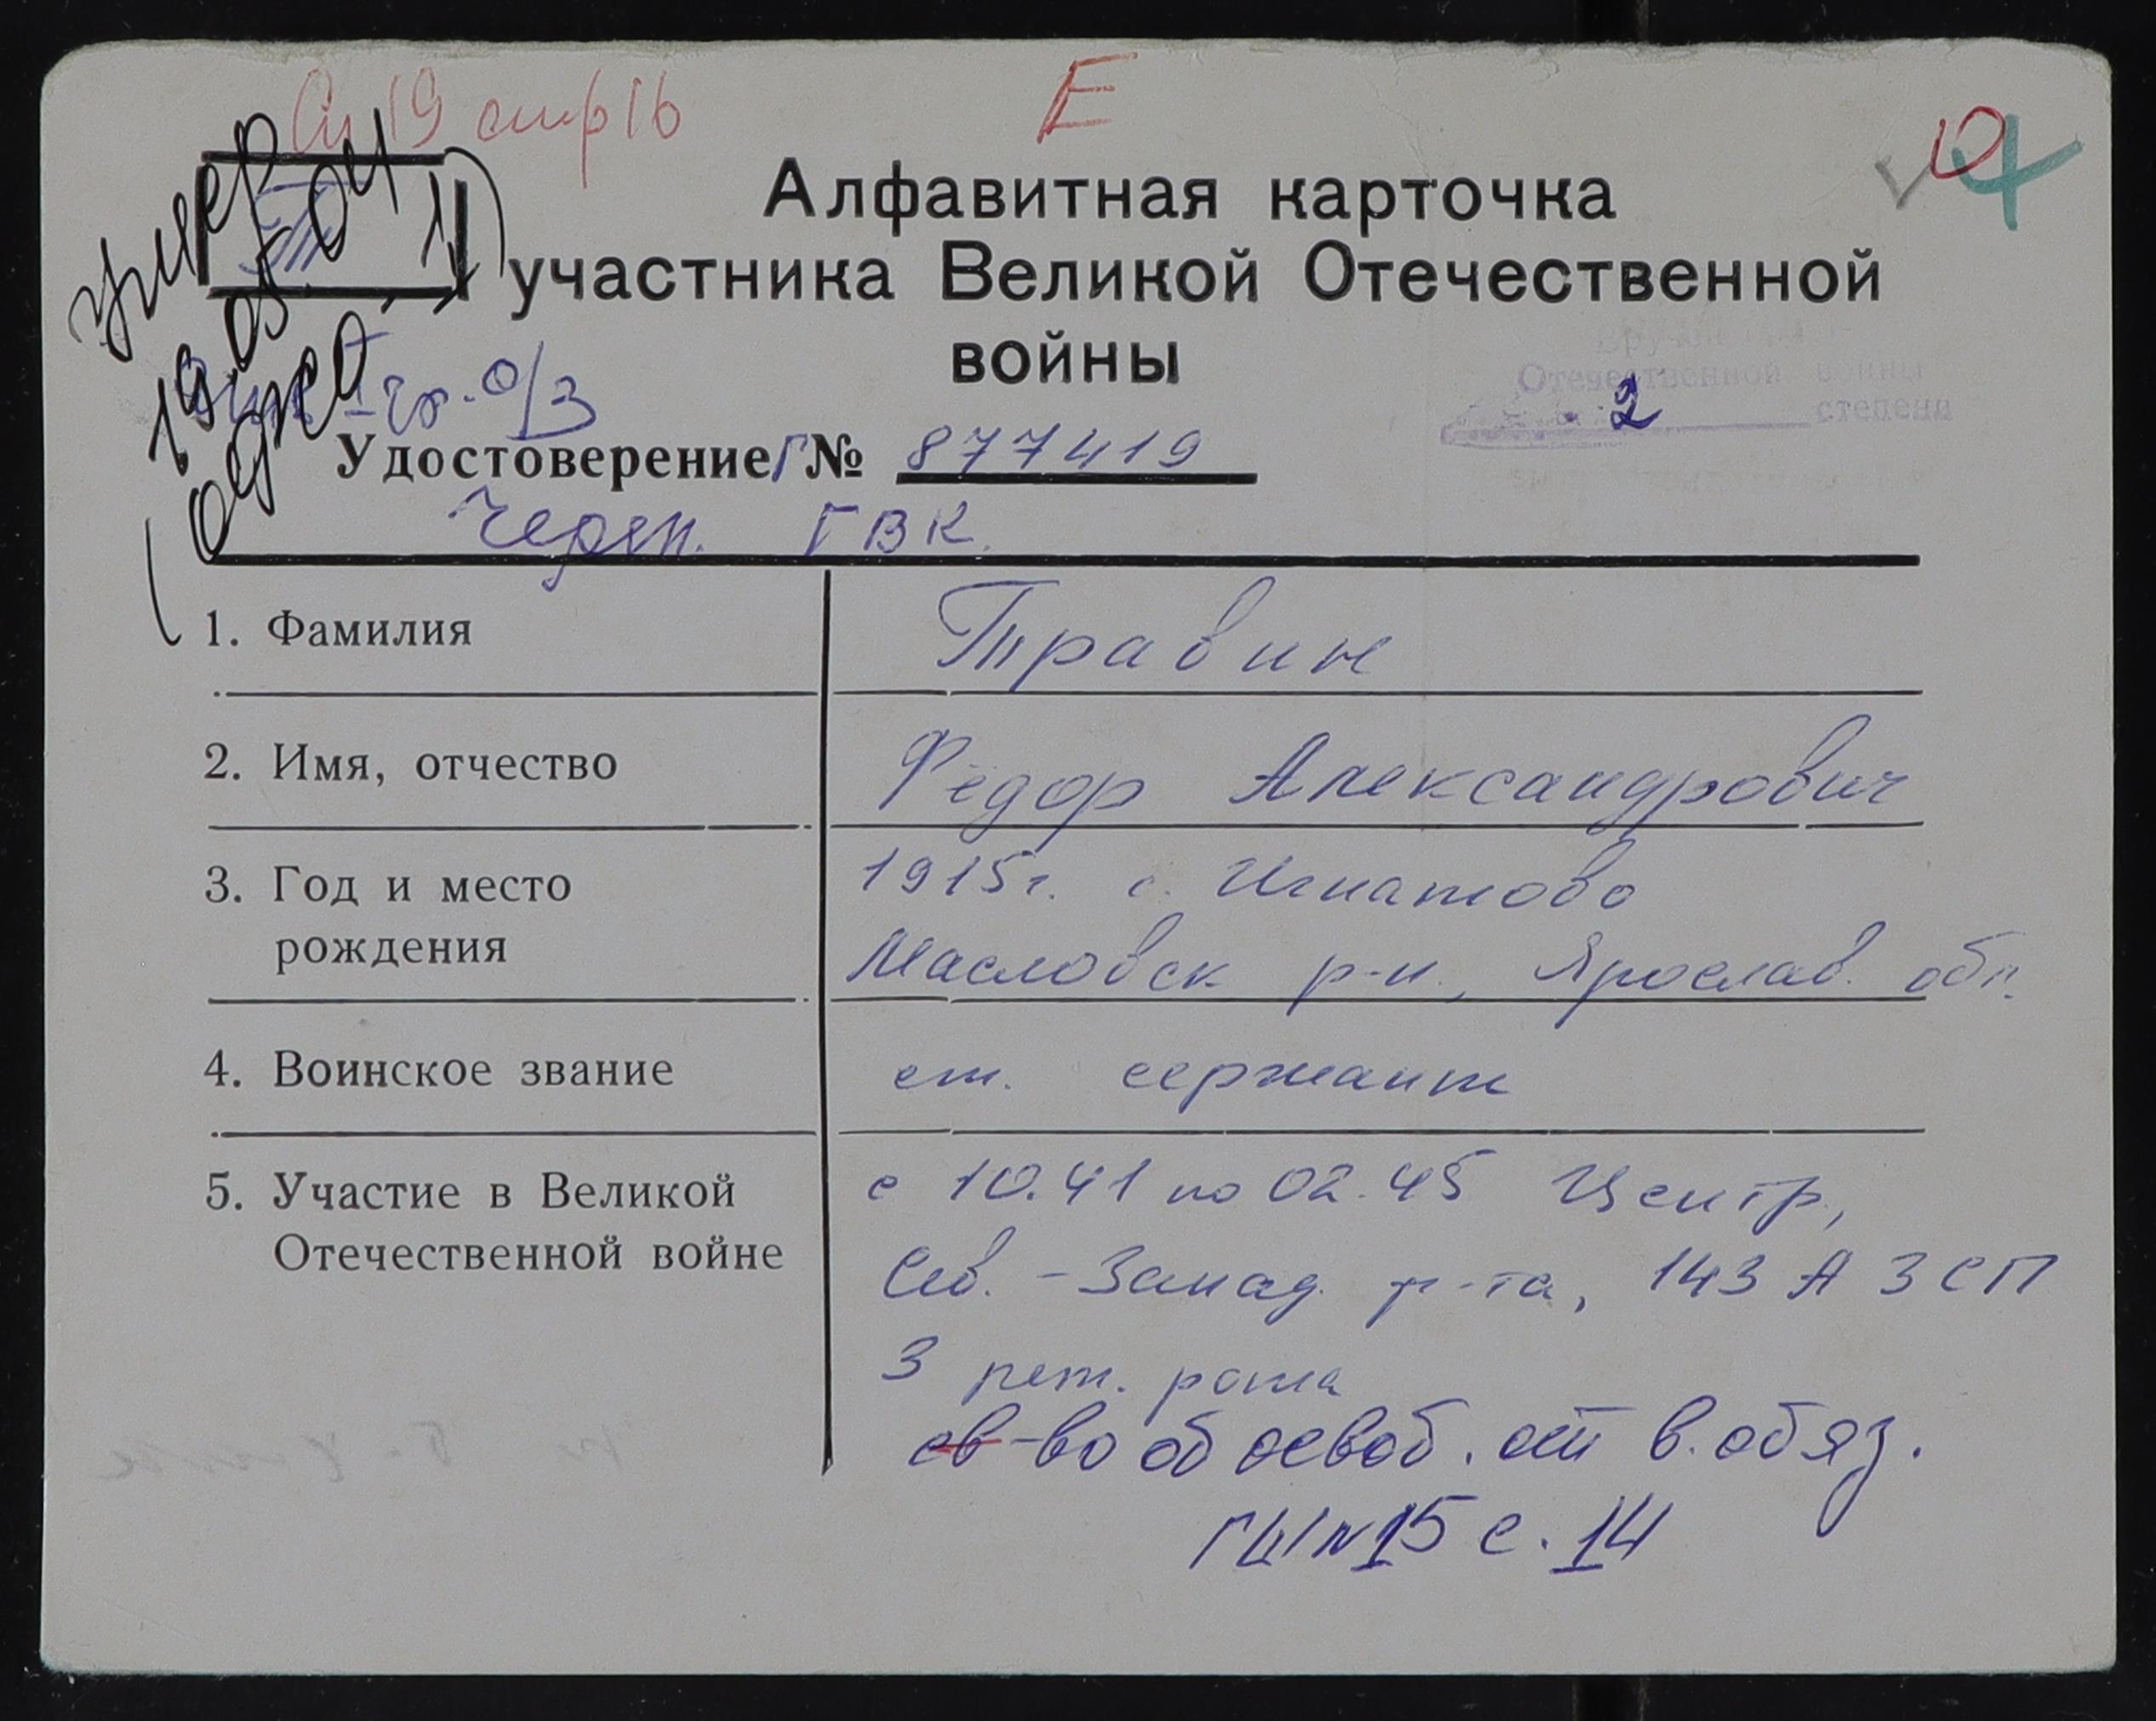 Сп 19 стр 16
Е
умер
19.05.04
Алфавитная карточка
участника Великой Отечественной
войны
Отечественной войны
2 степени
гр. о/з
Удостоверение Г № 877419
Череп. ГВК.
1. Фамилия Травин
2. Имя, отчество Федор Александрович
3. Год и место 1915г. с. Игнатово
рождения Масловск р-н., Ярослав. обл.
4. Воинское звание ст. сержант
5. Участие в Великой с 10.41 по 02.45 Центр.,
Отечественной войне Сев. - Запад. ф-та, 143 АЗСП
3 рем. рота
св-во об освоб. от в. обяз.
ГШ №15 с. 14